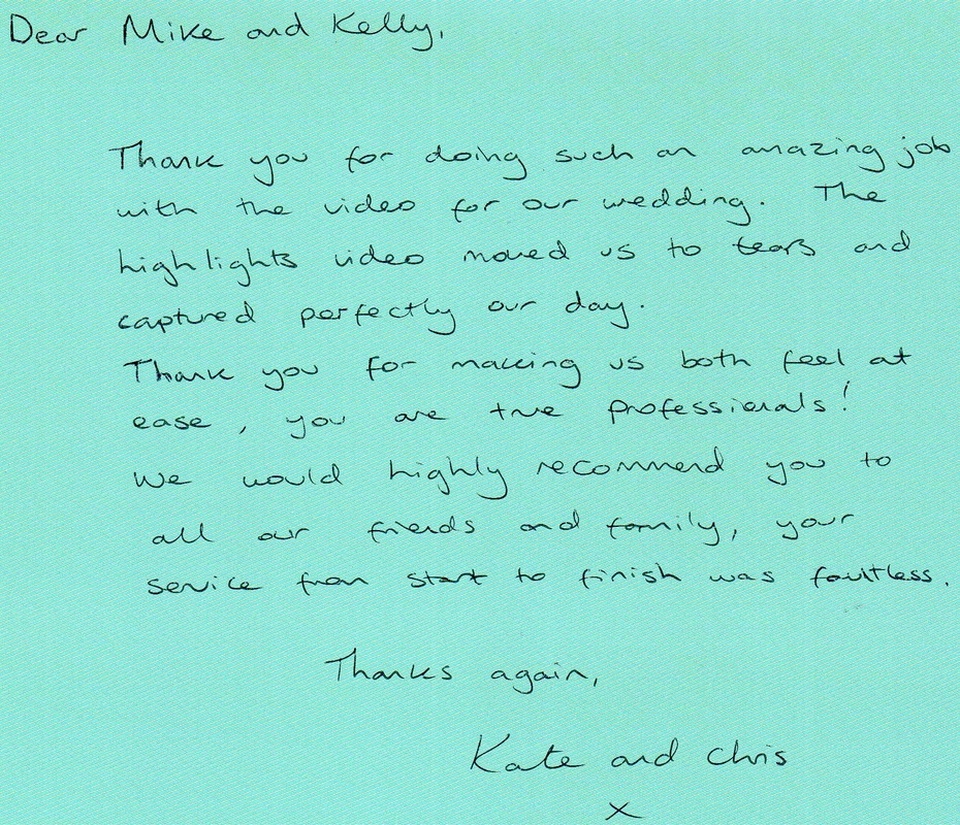 Dear Mike and Kelly,
Thank you for doing such an amazing job
with the video for our wedding. The
highlights video moved us to tears and
captured perfectly our day.
Thank you for making us both feel at
ease, you are true professionals!
We would highly recommend you to
all our friends and family, your
service from start to finish was faultless.
Thanks again,
Kate and Chris
x